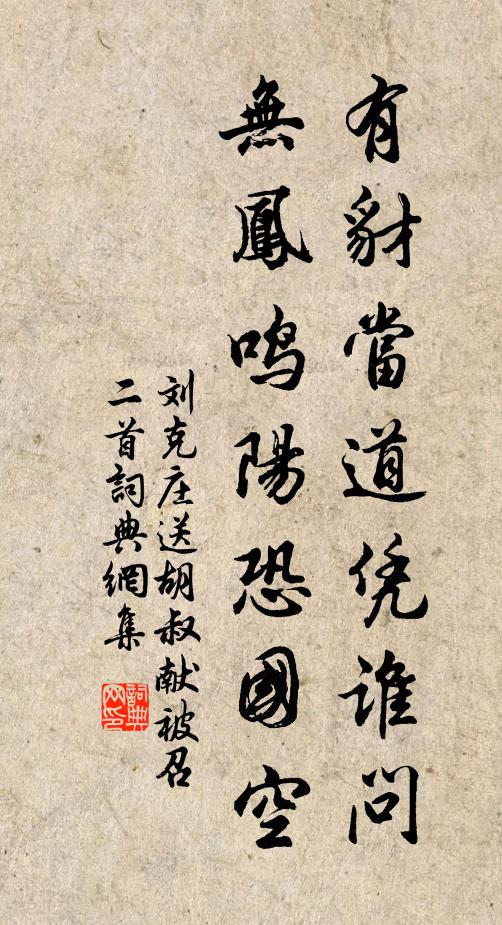 有豺當道凭誰問
無鳳鳴陽恐國空
刘克庄送胡叔献被召
二首詞典網集
詞典
网印